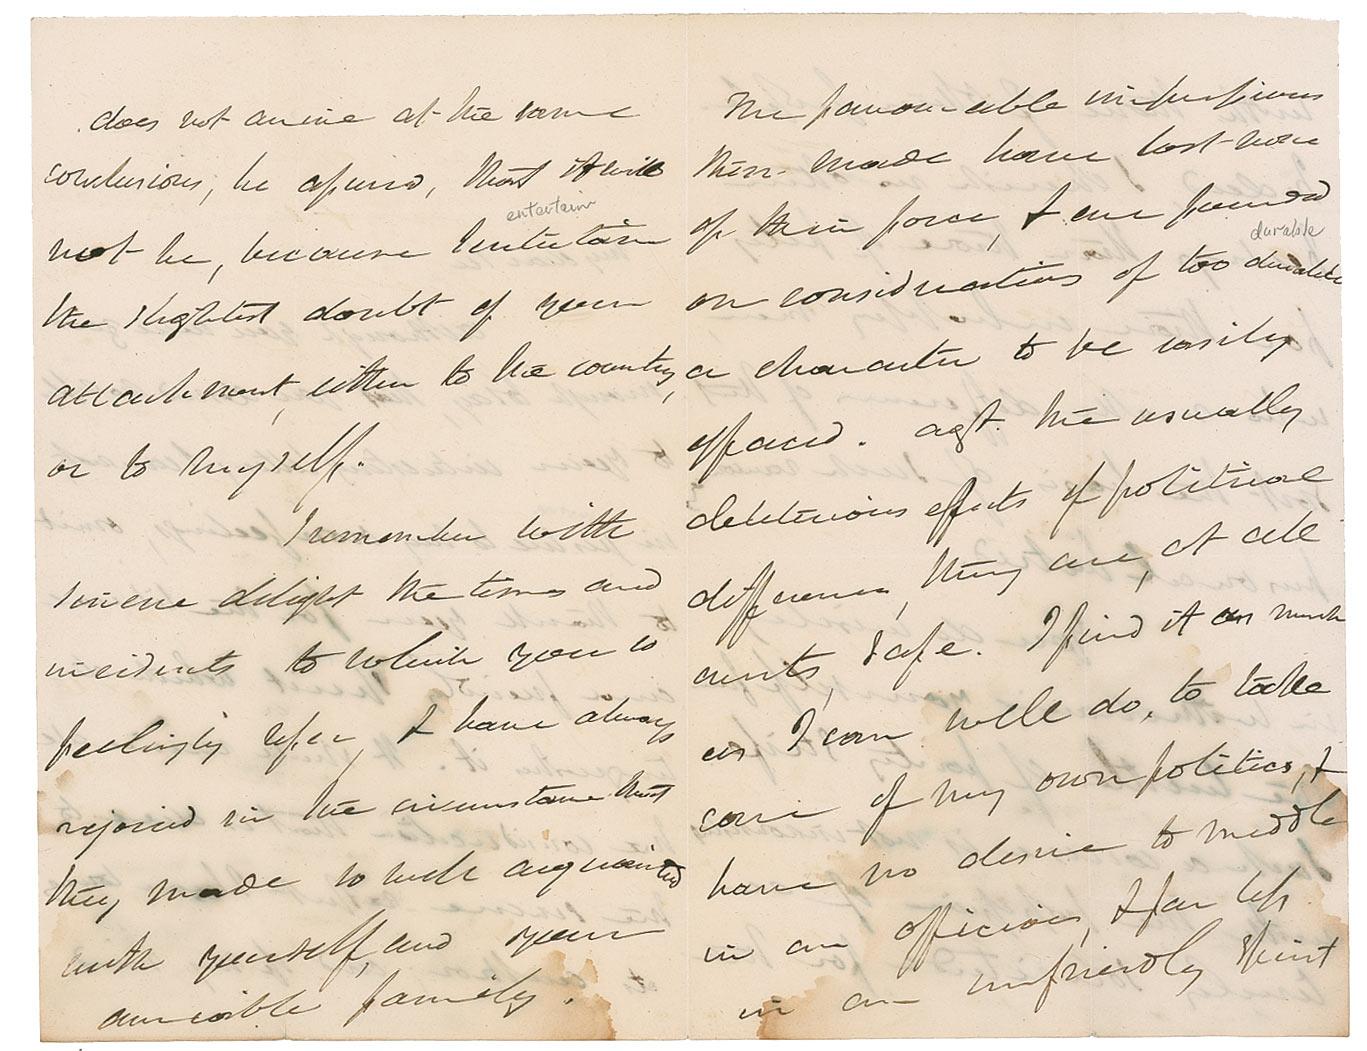 does not arrive at the same
conclusions, be assured, that it will
not be, because I entertain
entertain
the slightest doubt of your
attachment, either to the country,
or to myself.
I remember with
sincere delight the times and
incidents to which you so
feelingly refer, & have always
rejoiced in the circumstance that
they made so well acquainted
with yourself, and your
amiable family.
The favourable impressions
then made have lost none
of their force, & are founded
durable
on considerations of too durable
a character to be easily
effaced. agt. the usually
deleterious effects of political
differences, they are, at all
events, safe. I find it as much
as I can well do, to take
care of my own politics, &
have no desire to meddle
in an officious, & far less
in an unfriendly spirit